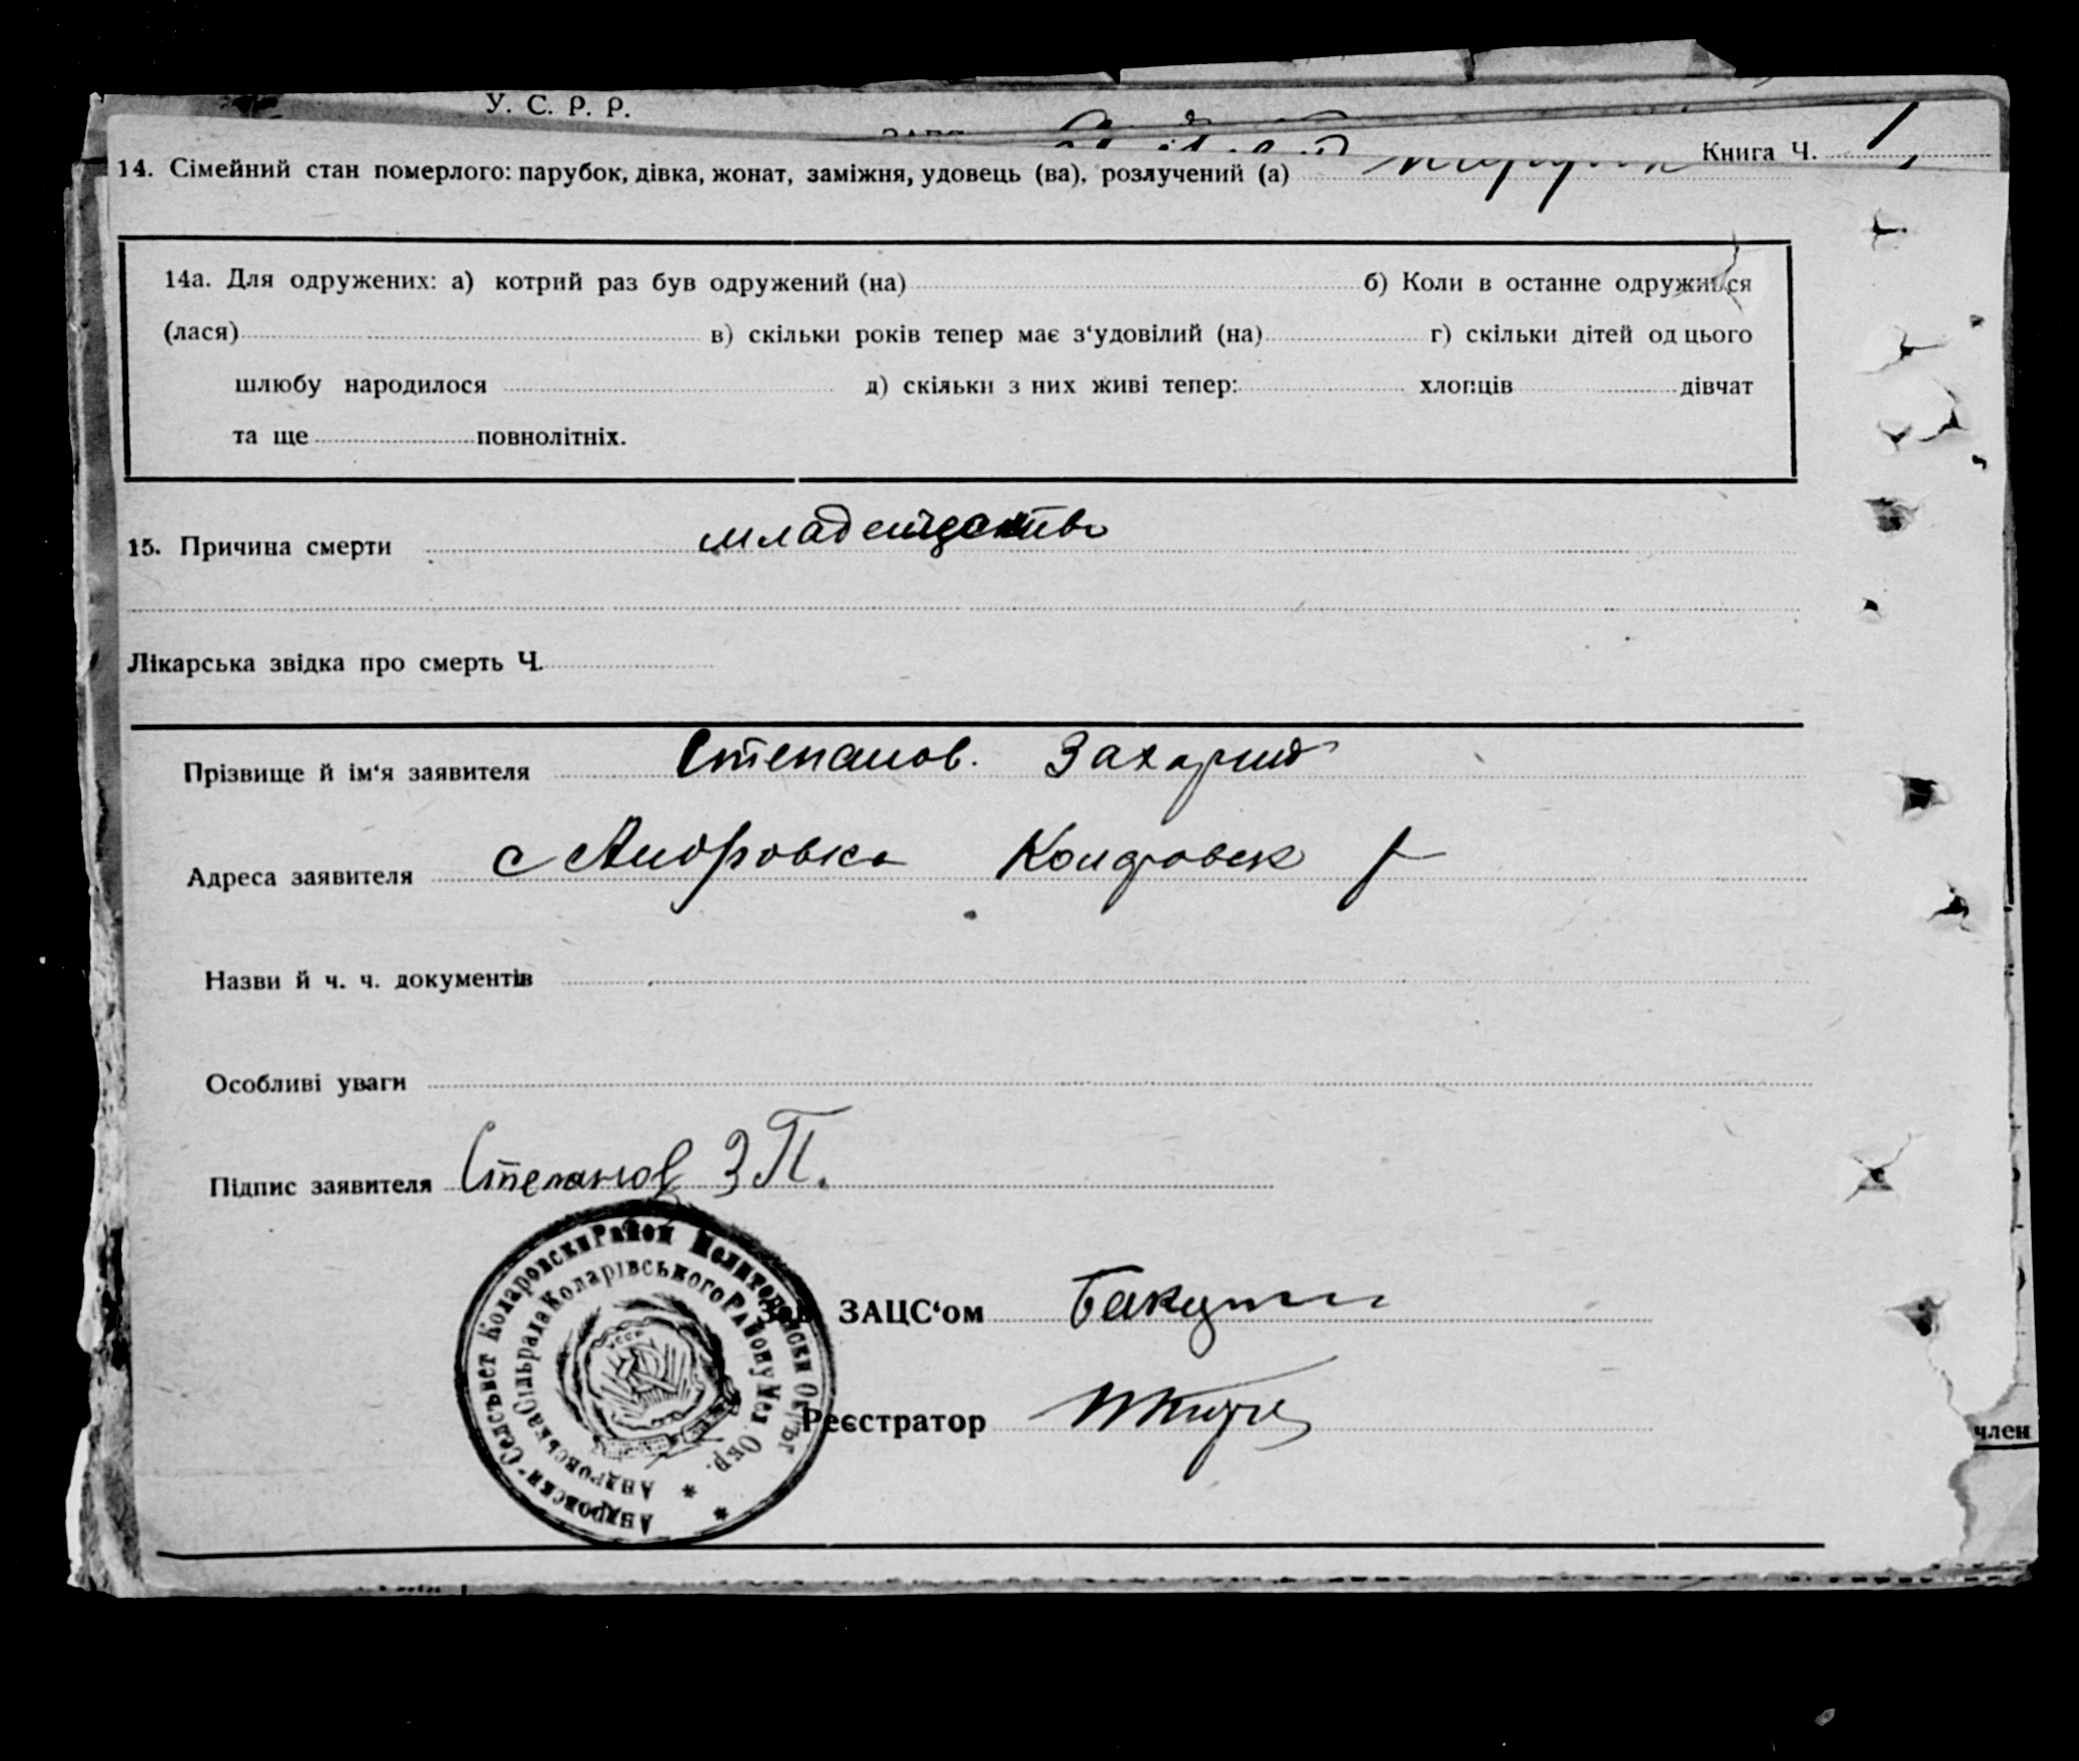 У. С. Р. Р.
Книга Ч.
14. Сімейний стан померлого: парубок, дівка, жонат, заміжня, удовець (ва), розлучений (а)
14а. Для одружених: а) котрий раз був одружений (на) б) Коли в останне одружився
(лася) в) скільки років тепер має з‘удовілий (на) г) скільки дітей од цього
шлюбу народилося д) скільки з них живі тепер: хлопців дівчат
та ще повнолітніх.
15. Причина смерти
Лікарська звідка про смерть Ч.
Прізвище й ім‘я заявителя Степанов. Захарий
Адреса заявителя с Андровка
Назви й ч. ч. документів
Особливі уваги
Підпис заявителя Степанов З П.
Андровски Селсьвет Коларовски Район Мелитополски Окръг
Андровська Сільрада Коларівського Району Мел. Окр.
Зав. ЗАЦС‘ом
Реєстратор
член